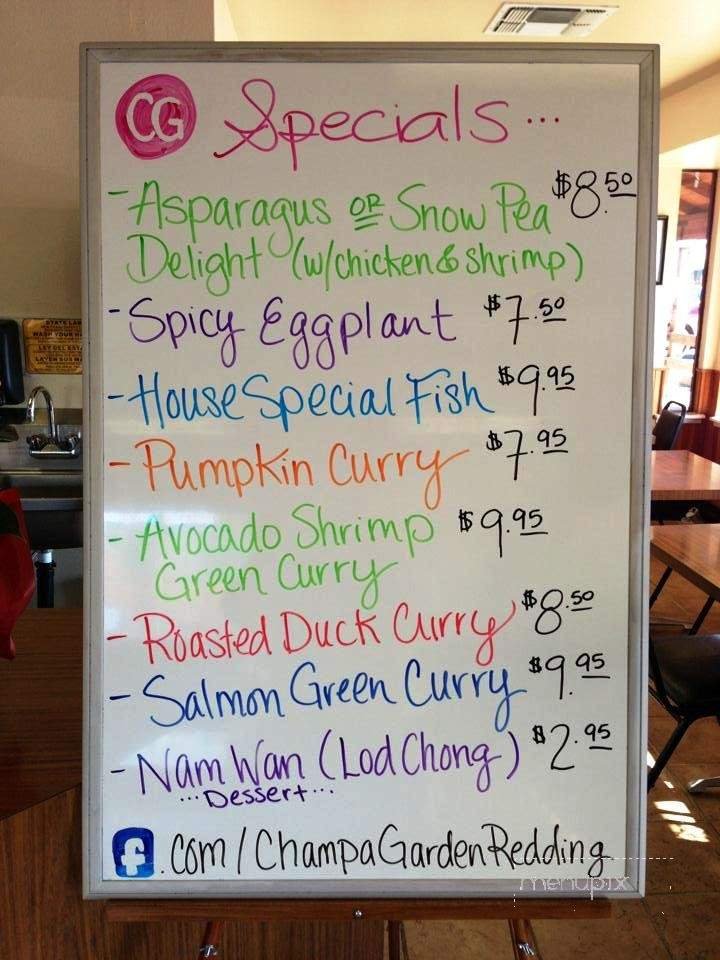 CG Specials...
- Asparagus OR Snow Pea $8.50
Delight (w/chicken & shrimp)
- Spicy Eggplant $7.50
- House Special Fish $9.95
- Pumpkin Curry $7.95
- Avocado Shrimp $9.95
Green Curry
- Roasted Duck Curry $8.50
- Salmon Green Curry $9.95
- Nam Wan (Lod Chong) $2.95
...Dessert...
f.com/ChampaGardenRedding
menupix